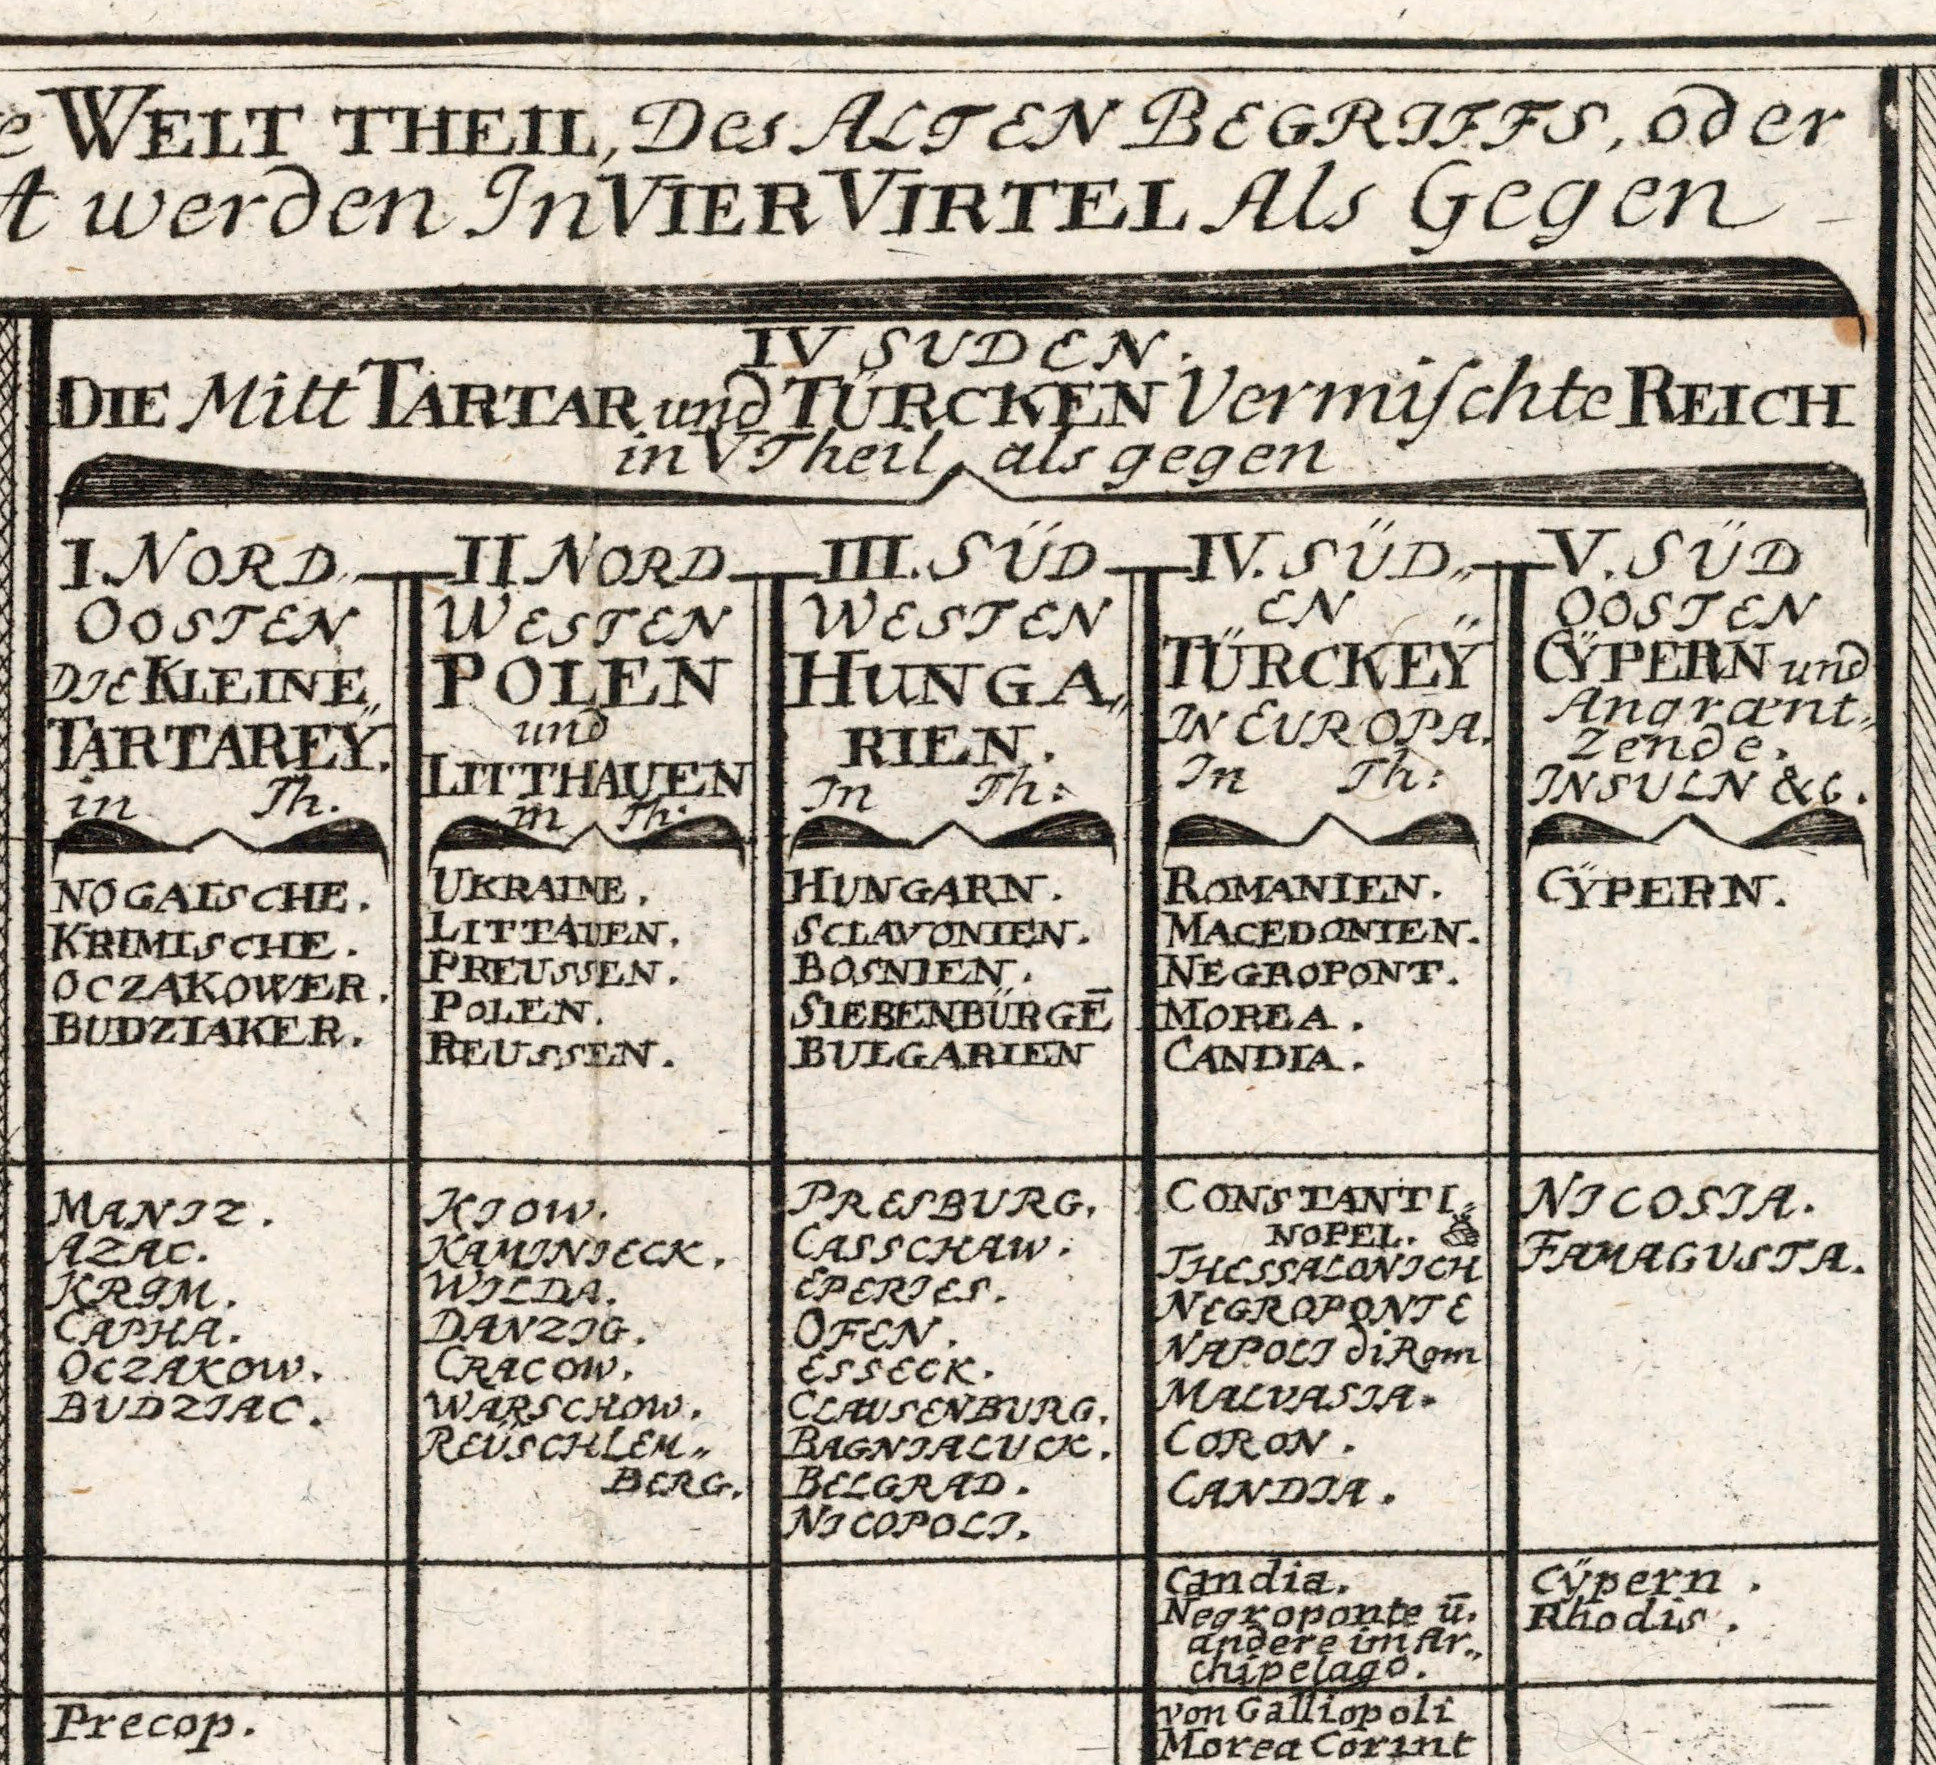 e WELT THEIL, Des ALTEN BEGRIFFS, oder
A werden In VIER VIRTEL Als Gegen
IV SUDEN.
DIE Mitt TARTAR und TÜRCKEN Vermischte REICH
in V Theil als gegen
I. NORD
OOSTEN
DIE KLEINE„
TARTAREŸ.
in Th.
NOGAISCHE.
KRIMISCHE.
OCZAKOWER.
BUDZIAKER.
MANIZ.
AZAC.
KRIM.
CAPHA.
OCZAKOW.
BUDZIAC.
Precop.
II NORD
WESTEN
POLEN
und
LITTHAUEN
in Th:
UKRAINE.
LITTAUEN.
PREUSSEN.
POLEN.
REUSSEN.
KIOW.
KAMINIECK.
WILDA.
DANZIG.
CRACOW.
WARSCHOW.
REUSCHLEM„
BERG.
III. SÜD
WESTEN
HUNGA„
RIEN.
In Th:
HUNGARN.
SCLAVONIEN.
BOSNIEN.
SIEBENBÜRGE̅
BULGARIEN
PRESBURG.
CASSCHAW.
EPERIES.
OFEN.
ESSECK.
CLAUSENBURG.
BAGNIALUCK.
BELGRAD.
NICOPOLI.
IV. SÜD„
EN
TÜRCKEŸ
IN EUROPA.
In Th:
ROMANIEN.
MACEDONIEN.
NEGROPONT.
MOREA.
CANDIA.
CONSTANTI„
NOPEL.
THESSALONICH
NEGROPONTE
NAPOLI di Rom
MALVASIA.
CORON.
CANDIA.
Candia.
Negroponte ū.
andere im Ar„
chipelago.
von Galliopoli
Morea Corint
V. SÜD
OOSTEN
CŸPERN und
Angrænt„
zende.
INSULN &c.
CŸPERN.
NICOSIA.
FAMAGUSTA.
Cÿpern.
Rhodis.